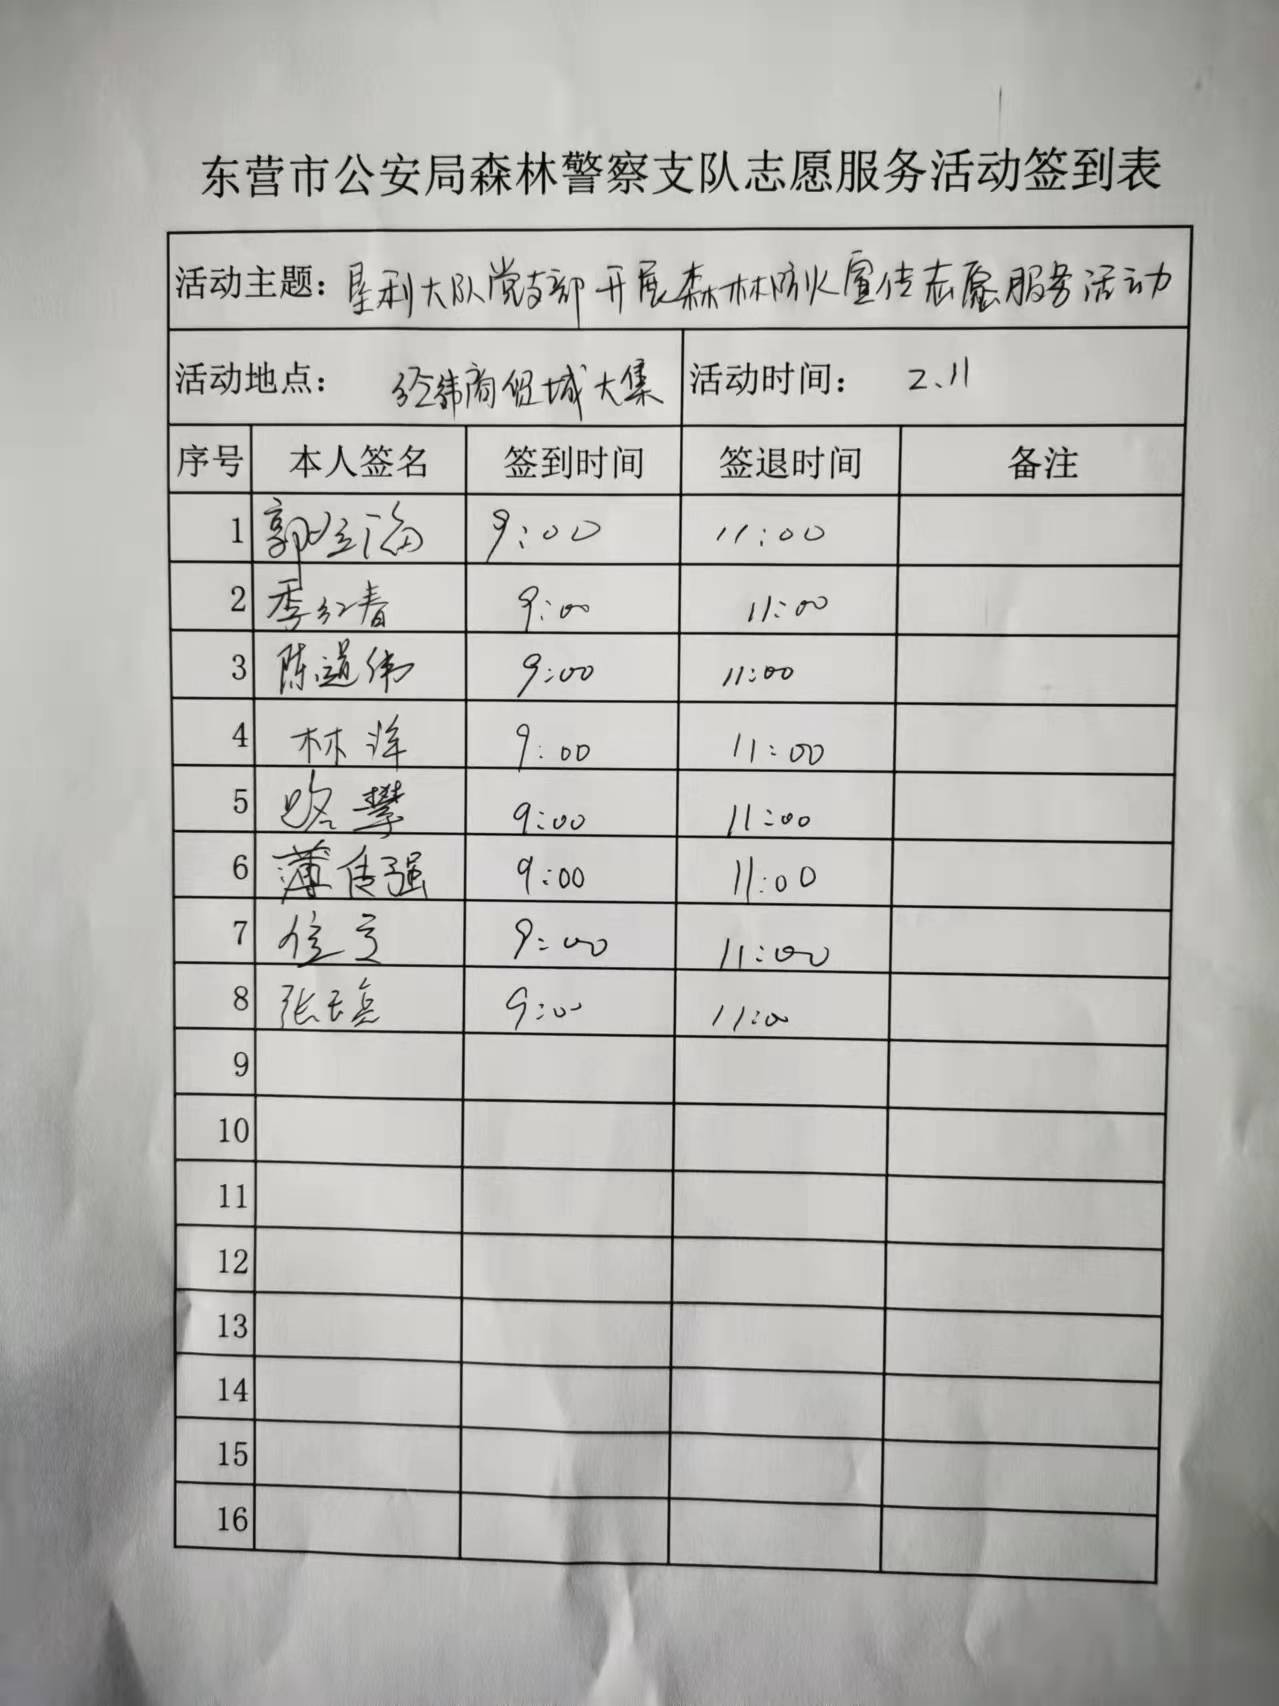 东营市公安局森林警察支队志愿服务活动签到表
活动主题：垦利大队党支部开展森林防火宣传志愿服务活动
活动地点：经纬商贸城大集 活动时间：2.11
序号 本人签名 签到时间 签退时间 备注
1 郭 海 9:00 11:00
2 季红春 9:00 11:00
3 陈道伟 9:00 11:00
4 林洋 9:00 11:00
5 路攀 9:00 11:00
6 薄传强 9:00 11:00
7 9:00 11:00
8 张 9:00 11:00
9
10
11
12
13
14
15
16